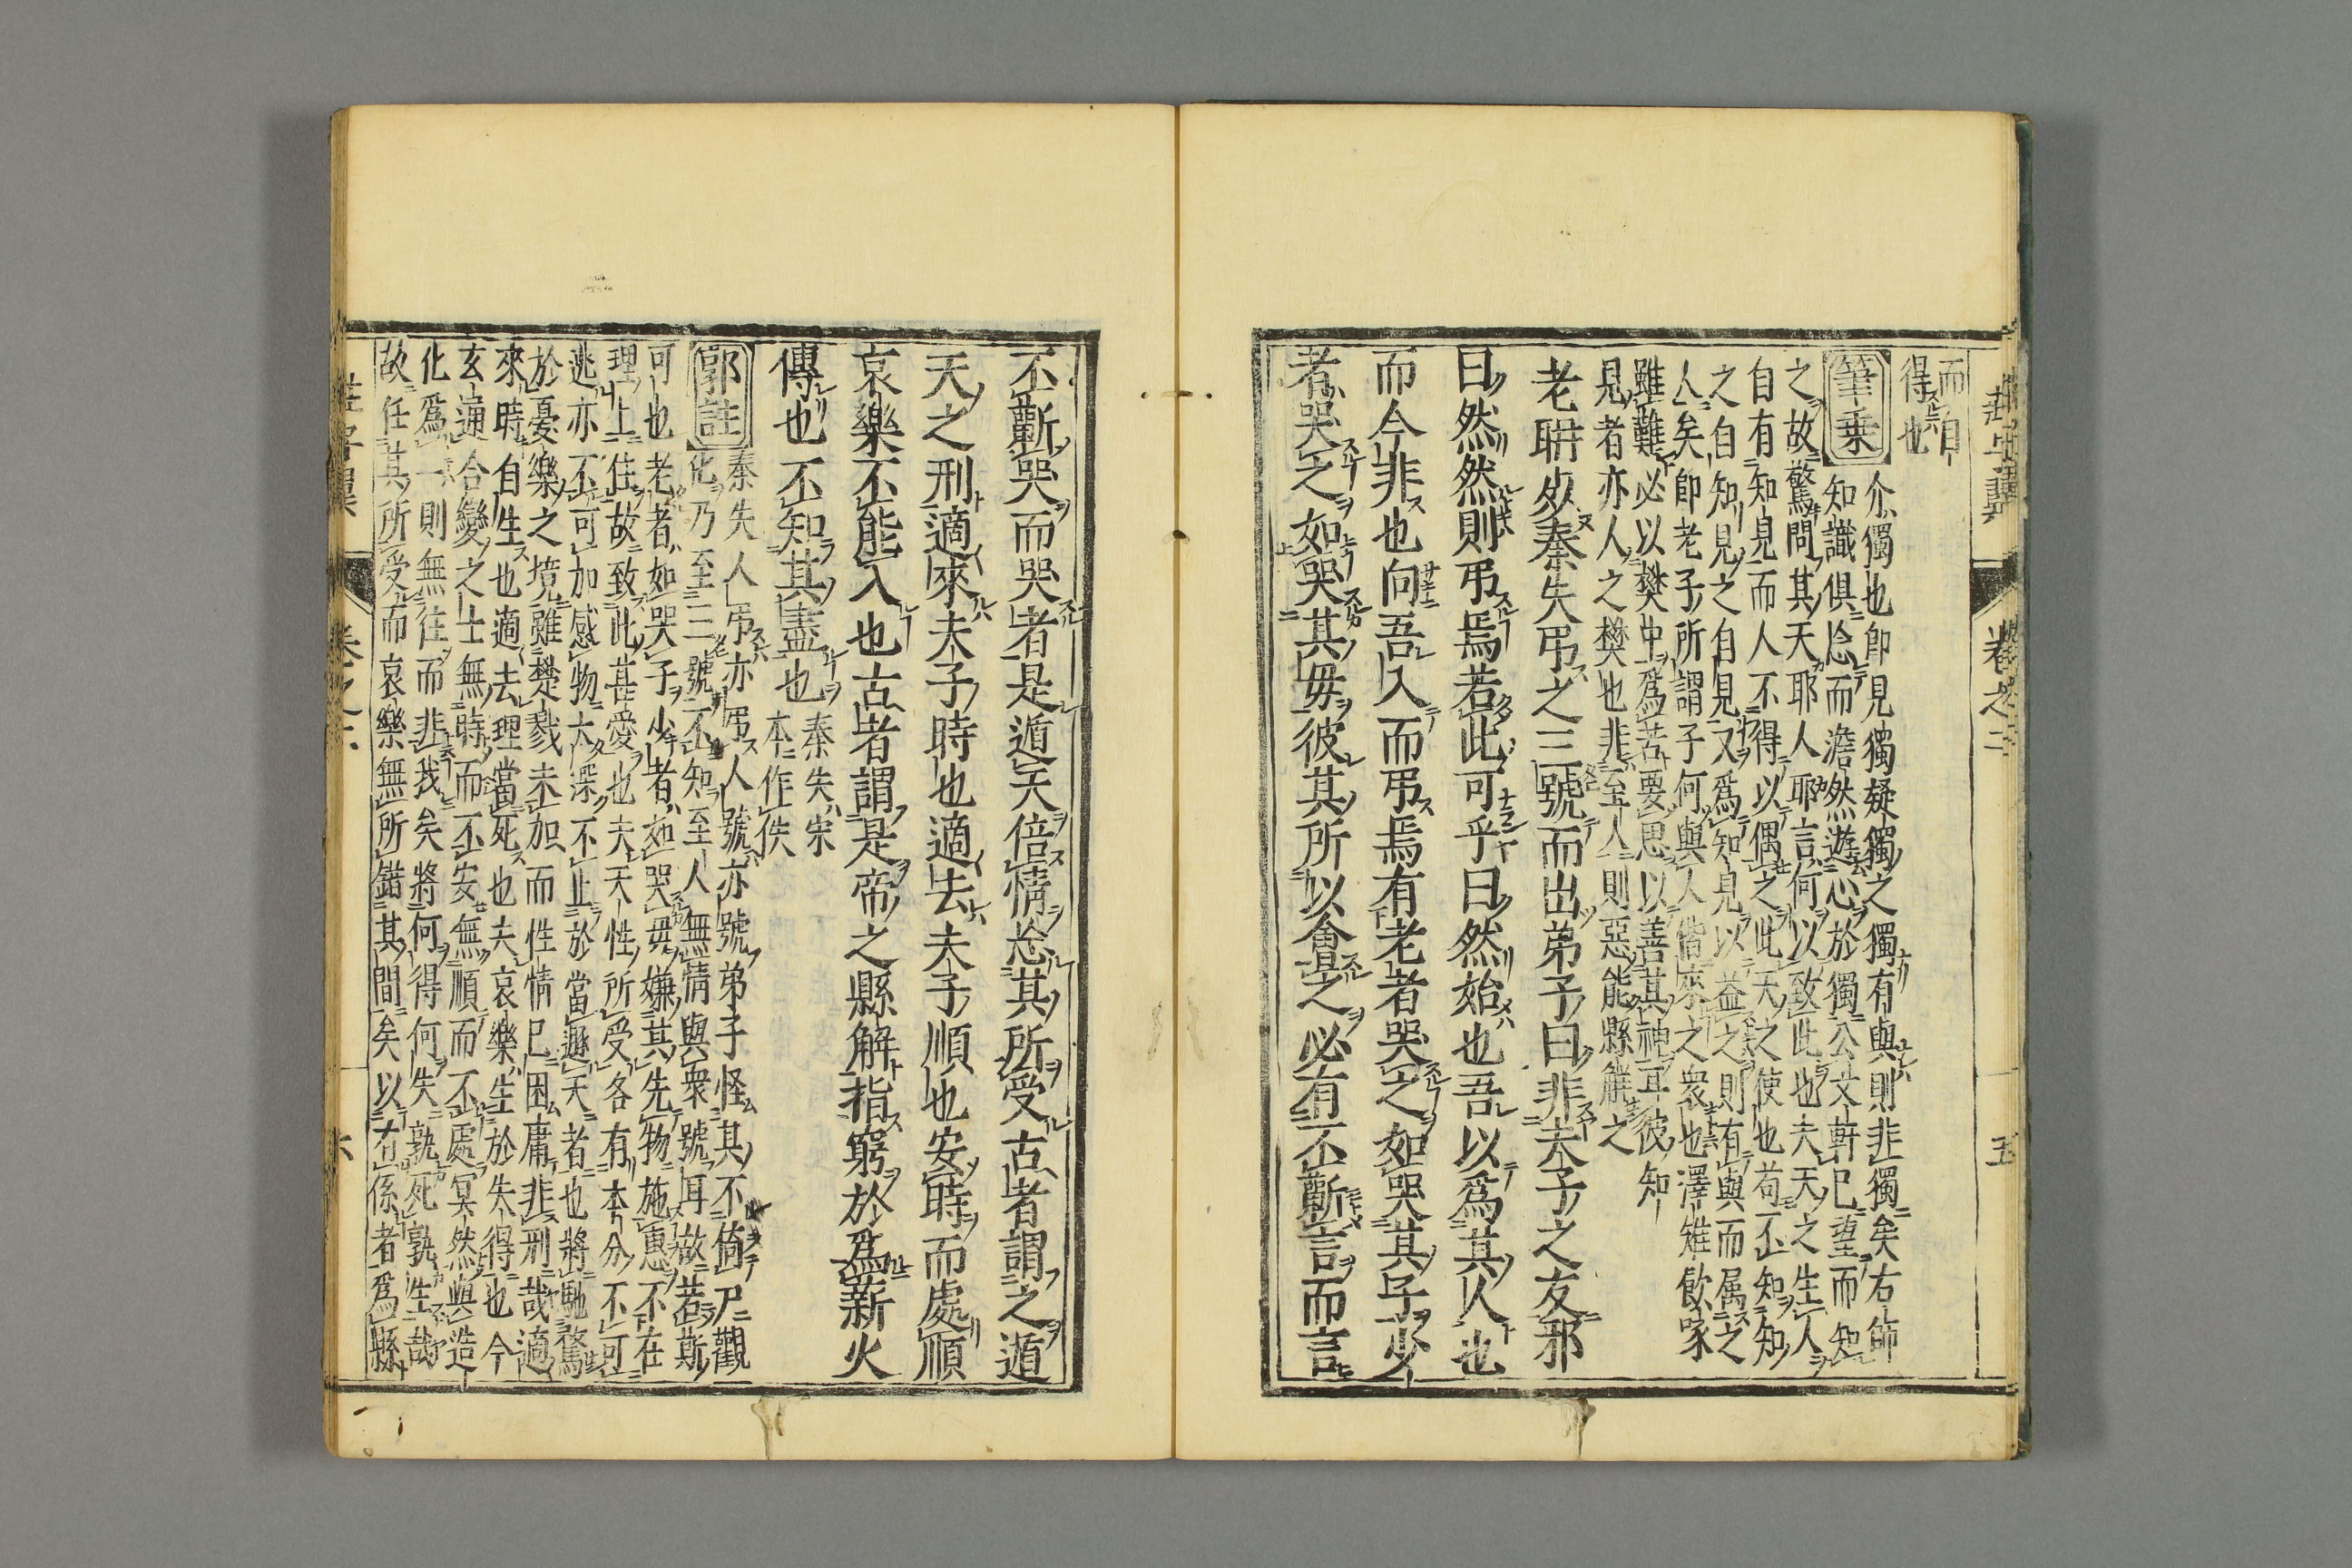 莊子翼 卷之二 五
而自
得也
筆乗
介獨也卽見獨疑獨之獨有與則非獨矣右師
知識俱忘而澹然遊心於獨公文軒已望而知
之故驚問其天耶人耶言何以致此也夫天之生人
自有知見而人不得以偶之此天之使也苟不知知
之自知見之自見又爲知見以益之則有與而属之
人矣卽老子所謂子何與人偕來之衆也澤雉飮啄
雖難必以樊中爲苦要思以善其神耳彼知
見者亦人之樊也非至人則惡能縣解之
老聃死秦失弔之三號而出弟子曰非夫子之友邪
曰然然則弔焉若此可乎曰然始也吾以爲其人也
而今非也向吾入而弔焉有老者哭之如哭其子少
者哭之如哭其母彼其所以會之必有不蘄言而言
不蘄哭而哭者是遁天倍情忘其所受古者謂之遁
天之刑適來夫子時也適去夫子順也安時而處順
哀樂不能入也古者謂是帝之縣解指窮於爲薪火
傳也不知其盡也
秦失宋
本作佚
郭註
秦失人弔亦弔人號亦號弟子怪其不倚尸觀
化乃至三號不知至人無情與衆號耳故若斯
可也老者如哭子少者如哭母嫌其先物施惠不在
理上住故致此甚愛也夫天性所受各有本分不可
逃亦不可加感物大深不止於當遁天者也將馳騖
於憂樂之境雖楚戮未加而性情已困庸非刑哉適
來時自生也適去理當死也夫哀樂生於失得也今
玄通合變之士無時而不安無順而不處冥然與造
化爲一則無往而非我矣將何得何失孰死孰生哉
故任其所受而哀樂無所錯其間矣以有係者爲縣
六